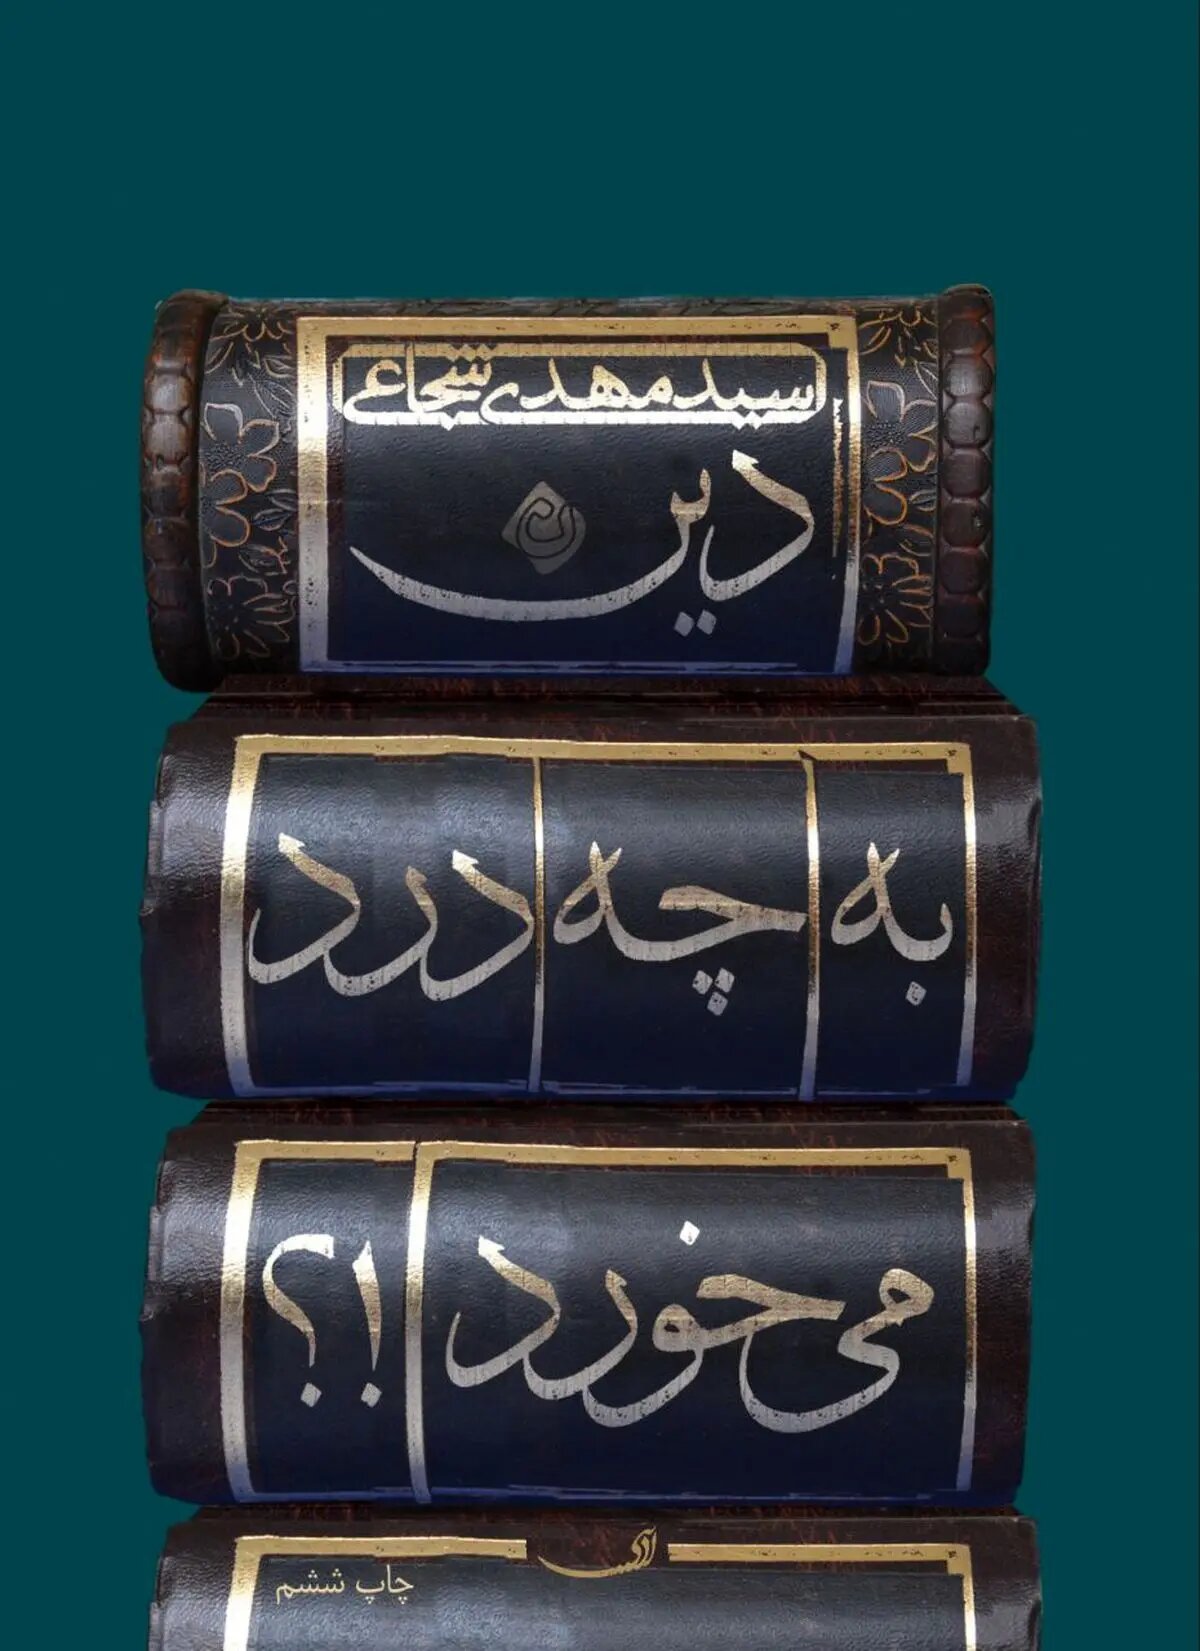 سید مهدی شجاعی
دین
به چه درد
می‌خورد !؟
چاپ ششم